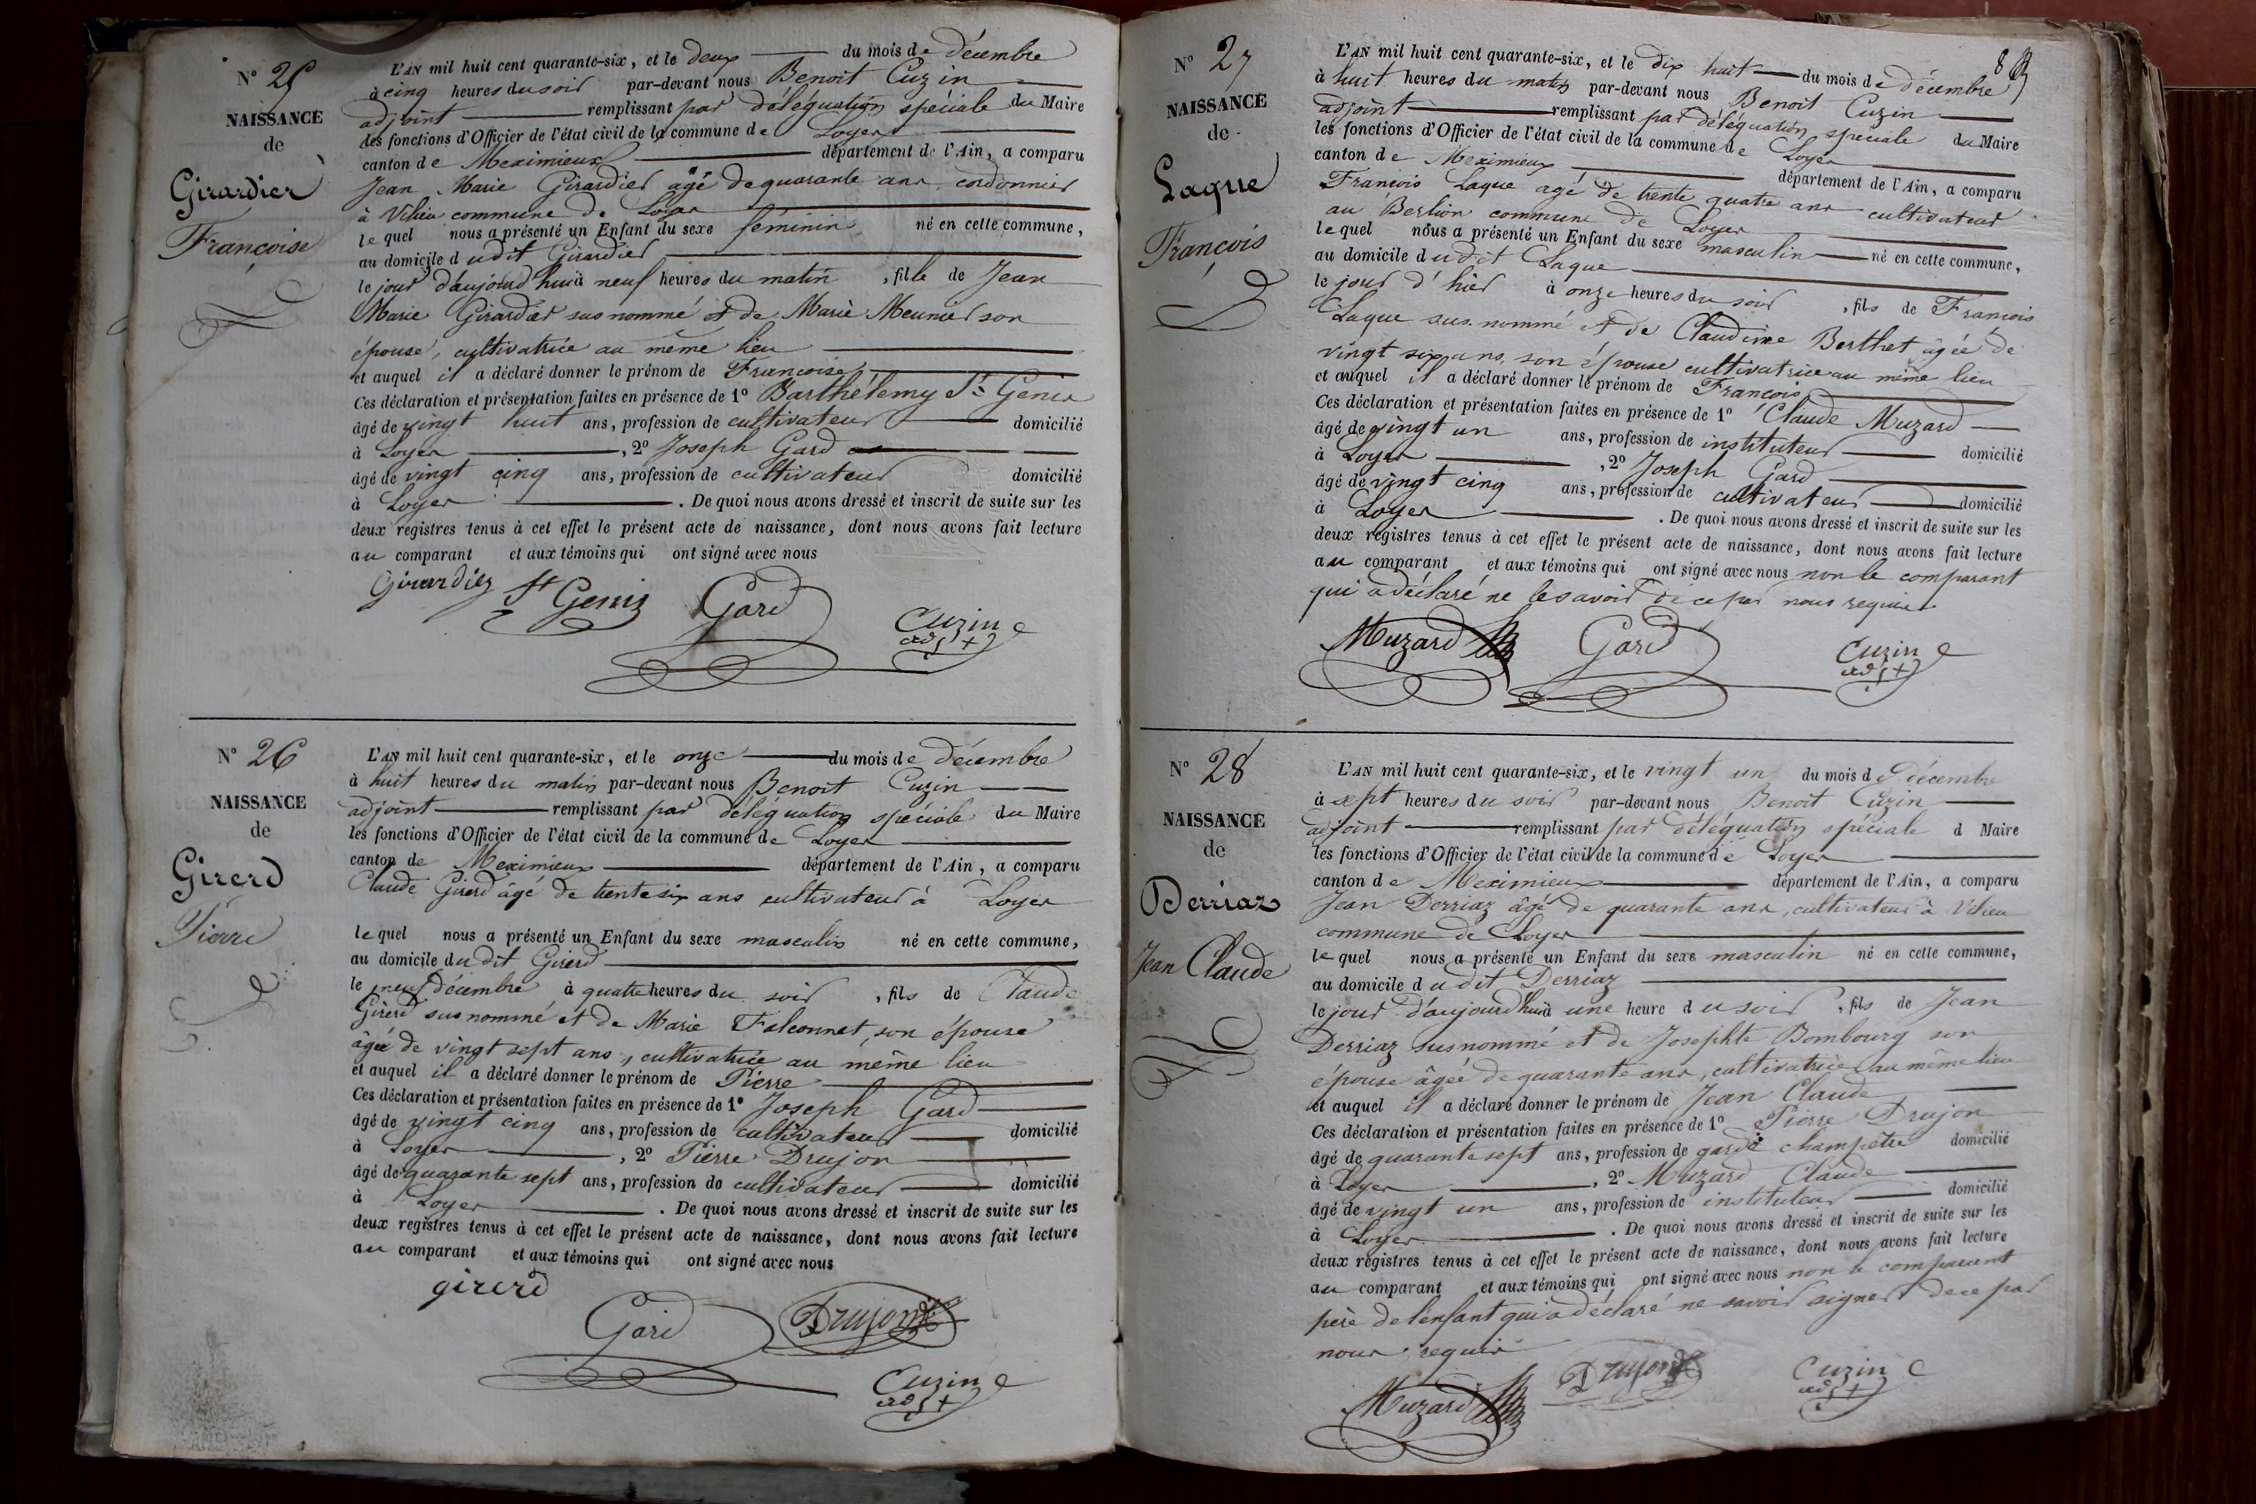 N° 25
NAISSANCE
de
Girardier
Françoise
L'AN mil huit cent quarante-six, et le deux du mois de décembre
à cinq heures du soir par-devant nous Benoit Cuzin
adjoint remplissant par déléguation spéciale du Maire
les fonctions d'Officier de l'état civil de la commune de Loyes
canton de Meximieux département de l'Ain, a comparu
Jean Marie Girardier âgé de quarante ans cordonnier
à Vilieu commune de Loyes
lequel nous a présenté un Enfant du sexe féminin né en cette commune,
au domicile dudit Girardier
le jour d'aujourd'hui à neuf heures du matin, fille de Jean
Marie Girardier sus nommé et de Marie Meunier son
épouse, cultivatrice au même lieu
et auquel il a déclaré donner le prénom de Françoise
Ces déclaration et présentation faites en présence de 1° Barthélemy St Genis
âgé de vingt huit ans, profession de cultivateur domicilié
à Loyes, 2° Joseph Gard
âgé de vingt cinq ans, profession de cultivateur domicilié
à Loyes. De quoi nous avons dressé et inscrit de suite sur les
deux registres tenus à cet effet le présent acte de naissance, dont nous avons fait lecture
au comparant et aux témoins qui ont signé avec nous
Girardier St Genis Gard Cuzin
adj
N° 26
NAISSANCE
de
Girerd
Pierre
L'AN mil huit cent quarante-six, et le onze du mois de décembre
à huit heures du matin par-devant nous Benoit Cuzin
adjoint remplissant par déléguation spéciale du Maire
les fonctions d'Officier de l'état civil de la commune de Loyes
canton de Meximieux département de l'Ain, a comparu
Claude Girerd âgé de trente six ans cultivateur à Loyes
lequel nous a présenté un Enfant du sexe masculin né en cette commune,
au domicile dudit Girerd
le neuf décembre à quatre heures du soir, fils de Claude
Girerd sus nommé et de Marie Falconnet, son épouse
âgée de vingt sept ans, cultivatrice au même lieu
et auquel il a déclaré donner le prénom de Pierre
Ces déclaration et présentation faites en présence de 1° Joseph Gard
âgé de vingt cinq ans, profession de cultivateur domicilié
à Loyes, 2° Pierre Drujon
âgé de quarante sept ans, profession de cultivateur domicilié
à Loyes. De quoi nous avons dressé et inscrit de suite sur les
deux registres tenus à cet effet le présent acte de naissance, dont nous avons fait lecture
au comparant et aux témoins qui ont signé avec nous
girerd
Gard Drujon
Cuzin
adj
8
N° 27
NAISSANCE
de
Laque
François
L'AN mil huit cent quarante-six, et le dix huit du mois de décembre
à huit heures du matin par-devant nous Benoit Cuzin
adjoint remplissant par déléguation spéciale du Maire
les fonctions d'Officier de l'état civil de la commune de Loyes
canton de Meximieux département de l'Ain, a comparu
François Laque agé de trente quatre ans cultivateur
au Berlion commune de Loyes
lequel nous a présenté un Enfant du sexe masculin né en cette commune,
au domicile dudit Laque
le jour d'hier à onze heures du soir, fils de François
Laque sus nommé et de Claudine Berthet âgée de
vingt six ans, son épouse cultivatrice au même lieu
et auquel il a déclaré donner le prénom de François
Ces déclaration et présentation faites en présence de 1° Claude Muzard
âgé de vingt un ans, profession de instituteur domicilié
à Loyes, 2° Joseph Gard
âgé de vingt cinq ans, profession de cultivateur domicilié
à Loyes. De quoi nous avons dressé et inscrit de suite sur les
deux registres tenus à cet effet le présent acte de naissance, dont nous avons fait lecture
au comparant et aux témoins qui ont signé avec nous non le comparant
qui a déclaré ne le savoir de ce par nous requis
Muzard Gard Cuzin
adj
N° 28
NAISSANCE
de
Derriaz
Jean Claude
L'AN mil huit cent quarante-six, et le vingt un du mois de décembre
à sept heures du soir par-devant nous Benoit Cuzin
adjoint remplissant par déléguation spéciale d Maire
les fonctions d'Officier de l'état civil de la commune de Loyes
canton de Meximieux département de l'Ain, a comparu
Jean Derriaz âgé de quarante ans, cultivateur à Vilieu
commune de Loyes
lequel nous a présenté un Enfant du sexe masculin né en cette commune,
au domicile dudit Derriaz
le jour d'aujourd'hui à une heure du soir, fils de Jean
Derriaz sus nommé et de Josephte Bombourg son
épouse âgée de quarante ans, cultivatrice au même lieu
et auquel il a déclaré donner le prénom de Jean Claude
Ces déclaration et présentation faites en présence de 1° Pierre Drujon
âgé de quarante sept ans, profession de garde champêtre domicilié
à Loyes, 2° Muzard Claude
âgé de vingt un ans, profession de instituteur domicilié
à Loyes. De quoi nous avons dressé et inscrit de suite sur les
deux registres tenus à cet effet le présent acte de naissance, dont nous avons fait lecture
au comparant et aux témoins qui ont signé avec nous non le comparant
père de l'enfant qui a déclaré ne savoir signer de ce par
nous requis
Muzard Drujon Cuzin
adj